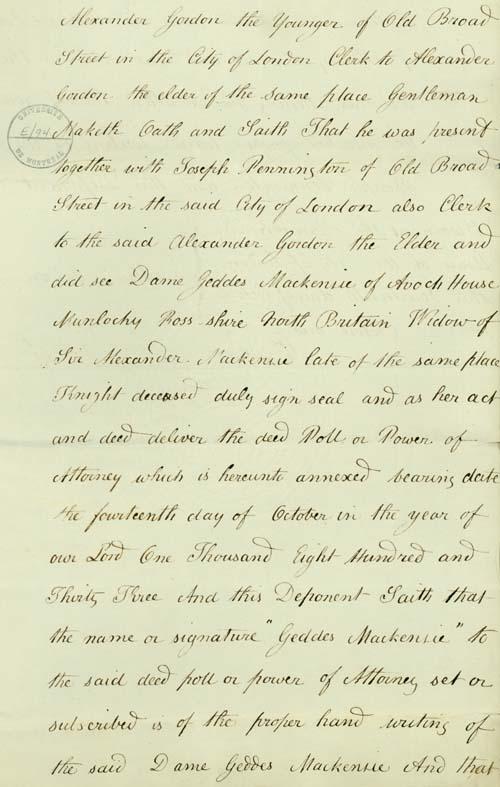 Alexander Gordon the Younger of Old Broad
Street in the City of London Clerk to Alexander
Gordon the elder of the same place Gentleman
Maketh Oath and Saith That he was present
together with Joseph Pennington of Old Broad
Street in the said City of London also Clerk
to the said Alexander Gordon the Elder and
did see Dame Geddes Mackensie of Avoch House
Munlochy Ross-shire North Britain Widow of
Sir Alexander Mackensie late of the same place
Knight deceased duly sign seal and as her act
and deed deliver the deed Poll or Power of
Attorney which is hereunto annexed bearing date
the fourteenth day of October in the year of
our Lord One Thousand Eight Hundred and
Thirty Three And this Deponent Saith that
the name or signature "Geddes Mackensie" to
the said deed poll or power of Attorney set or
subscribed is of the proper hand writing of
the said Dame Geddes Mackensie And that
UNIVERSITÉ
E/94
DE MONTRÉAL